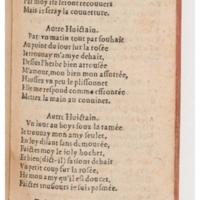 Par moy ilz seront recouuers
Mais ie seray la couuerture.
Autre Huictain.
Par vn matin tout par souhait
Au point du iour sur la rosée
Ie trouuay m'amye dehait,
Dessus l'herbe bien arrousée
M'amour, mon bien mon assottée,
Haussez vn peu le plissonnet
Elle me respond comme effrontée
Mettez la main au conninet.
Autre Huictain.
Vn iour au boys soubz la ramée
Ie trouuay mon amy seulet,
En luy disant sans demourée,
Faictes moy le ioly hochet,
Et bien (dict-il) faisons dehait
Vn petit coup sur la rosée,
He mon amy qu'il est doucet,
Faictes tousiours ie suis pasmée.